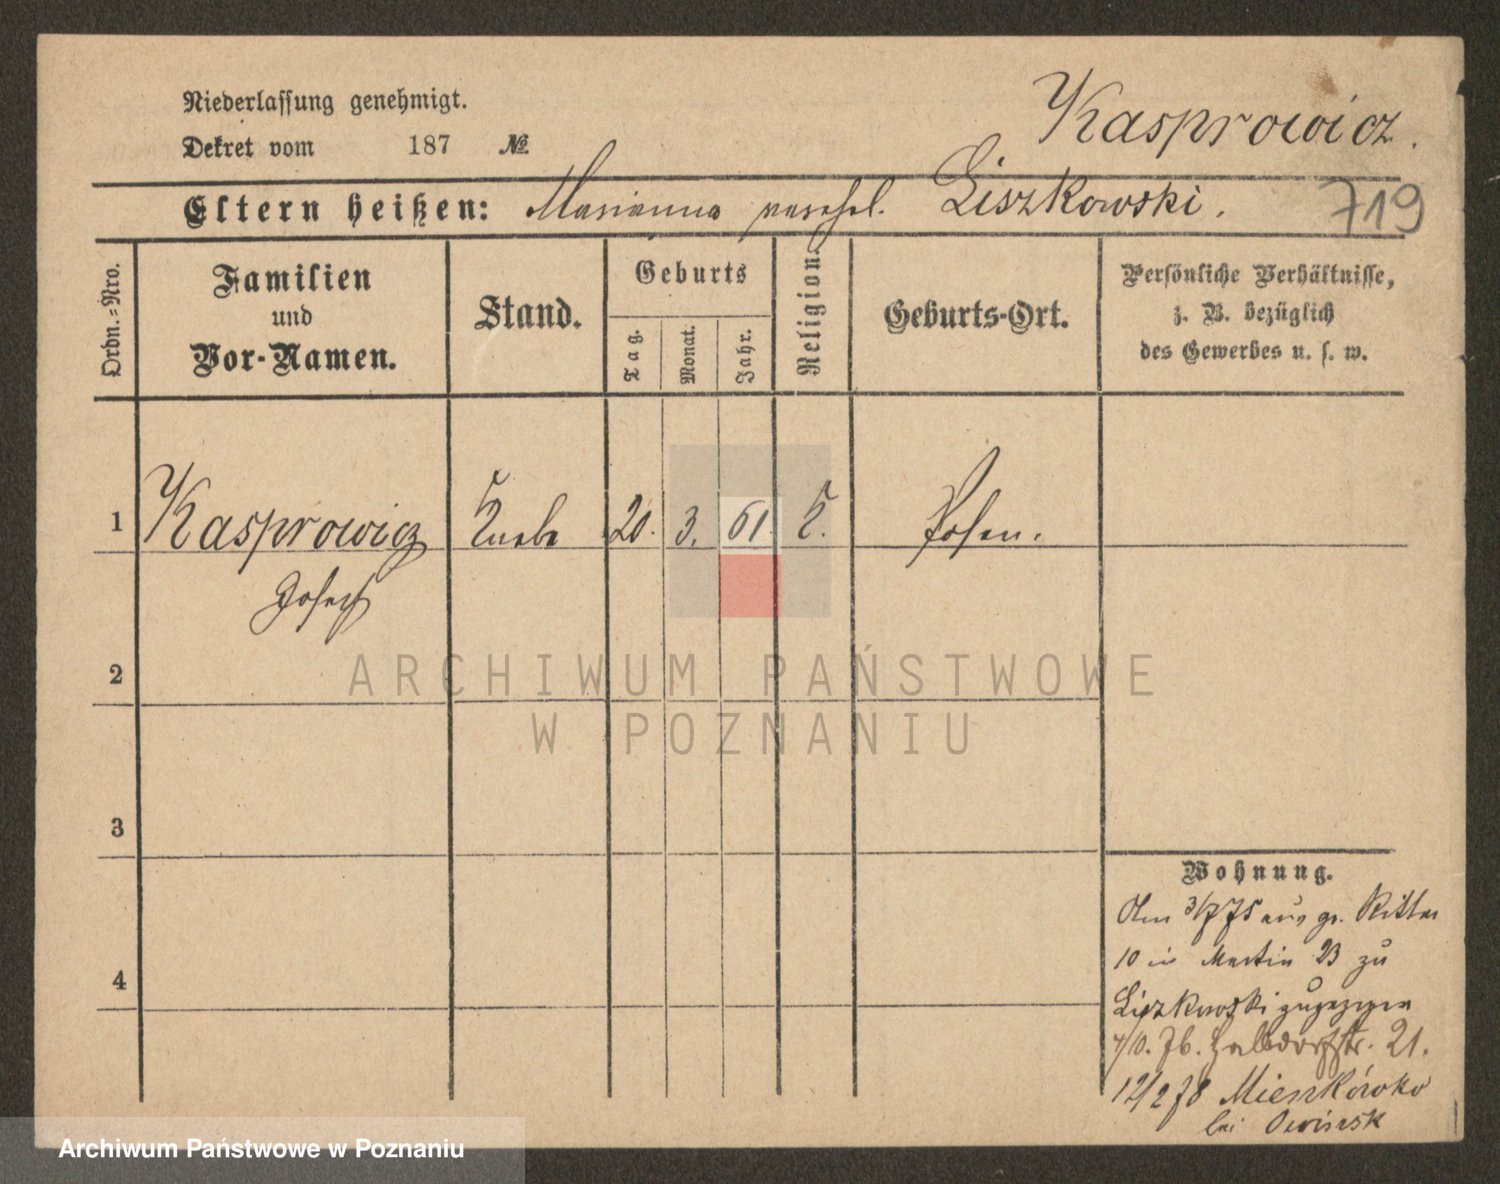 Niederlassung genehmigt.
Dekret vom 187 №
Kasprowicz.
Eltern heißen: Marianna verehel. Liszkowski.
719
Ordn.=Nro.
Familien
und
Vor-Namen.
Stand.
Geburts
Tag.
Monat.
Jahr.
Religion.
Geburts-Ort.
Persönliche Verhältnisse,
z. B. bezüglich
des Gewerbes u. s. w.
1 Kasprowicz Knabe 20. 3. 61 K. Posen.
Josef
2
ARCHIWUM PAŃSTWOWE
W POZNANIU
3
4
Wohnung.
Am 3/7 75 aus gr. Ritter
10 in Martin 23 zu
Liszkowski zugezogen
4/10. 76. Halbdorfstr. 21.
12/2 78 Mienkówko
bei Owinsk
Archiwum Państwowe w Poznaniu